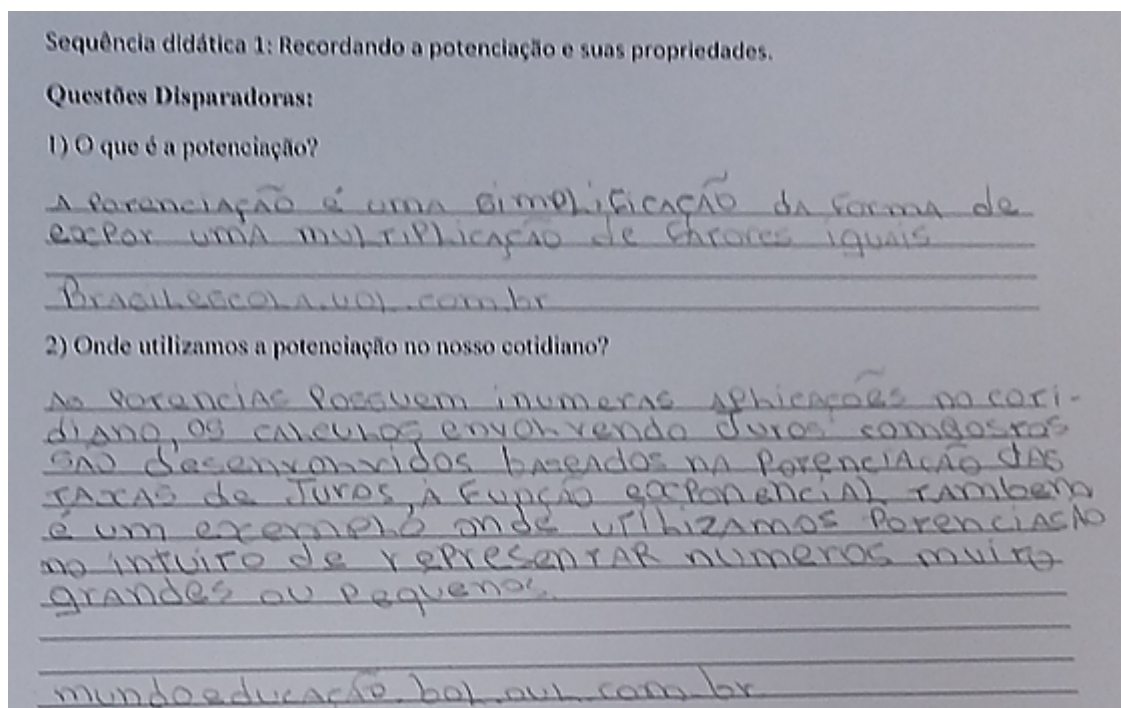 Sequência didática 1: Recordando a potenciação e suas propriedades.
Questões Disparadoras:
1) O que é a potenciação?
A Potenciação é uma simplificação da forma de
expor uma multiplicação de fatores iguais
Brasilescola.uol.com.br
2) Onde utilizamos a potenciação no nosso cotidiano?
As Potencias Possuem inumeras aplicações no coti-
diano, os calculos envolvendo Juros compostos
são desenvolvidos baseados na Potenciação das
taxas de Juros, a Função exponencial tambem
é um exemplo onde utilizamos Potenciação
no intuito de representar numeros muito
grandes ou Pequenos
mundoeducação.bol.oul.com.br